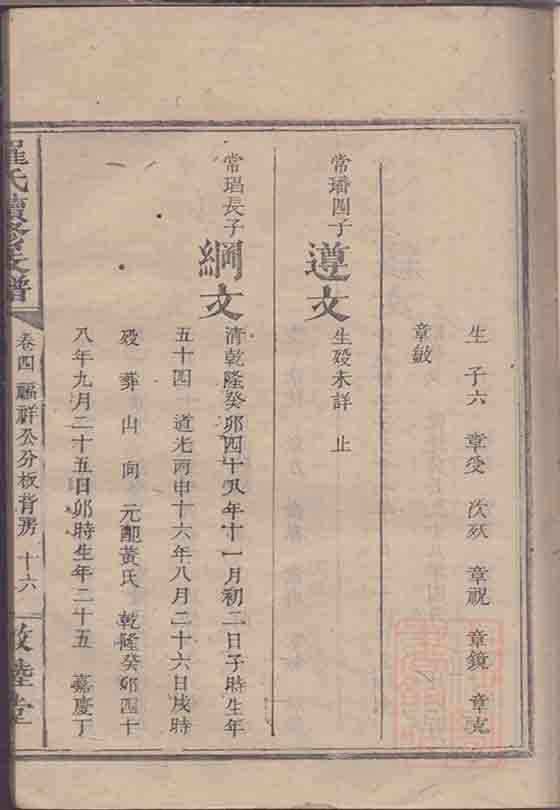 生　子六　章受　次殀　章祝　章鏡　章克
章敏
常璠四子
遵文
生殁未詳　止
常琩長子
綱文
清乾隆癸卯四十八年十一月初二日子時生年
五十四　道光丙申十六年八月二十六日戌時
殁　葬　山　向　元配黃氏　乾隆癸卯四十
八年九月二十五日卯時生年二十五　嘉慶丁
羅氏續修支譜
卷四　福祥公分板背房　十六
敦睦堂